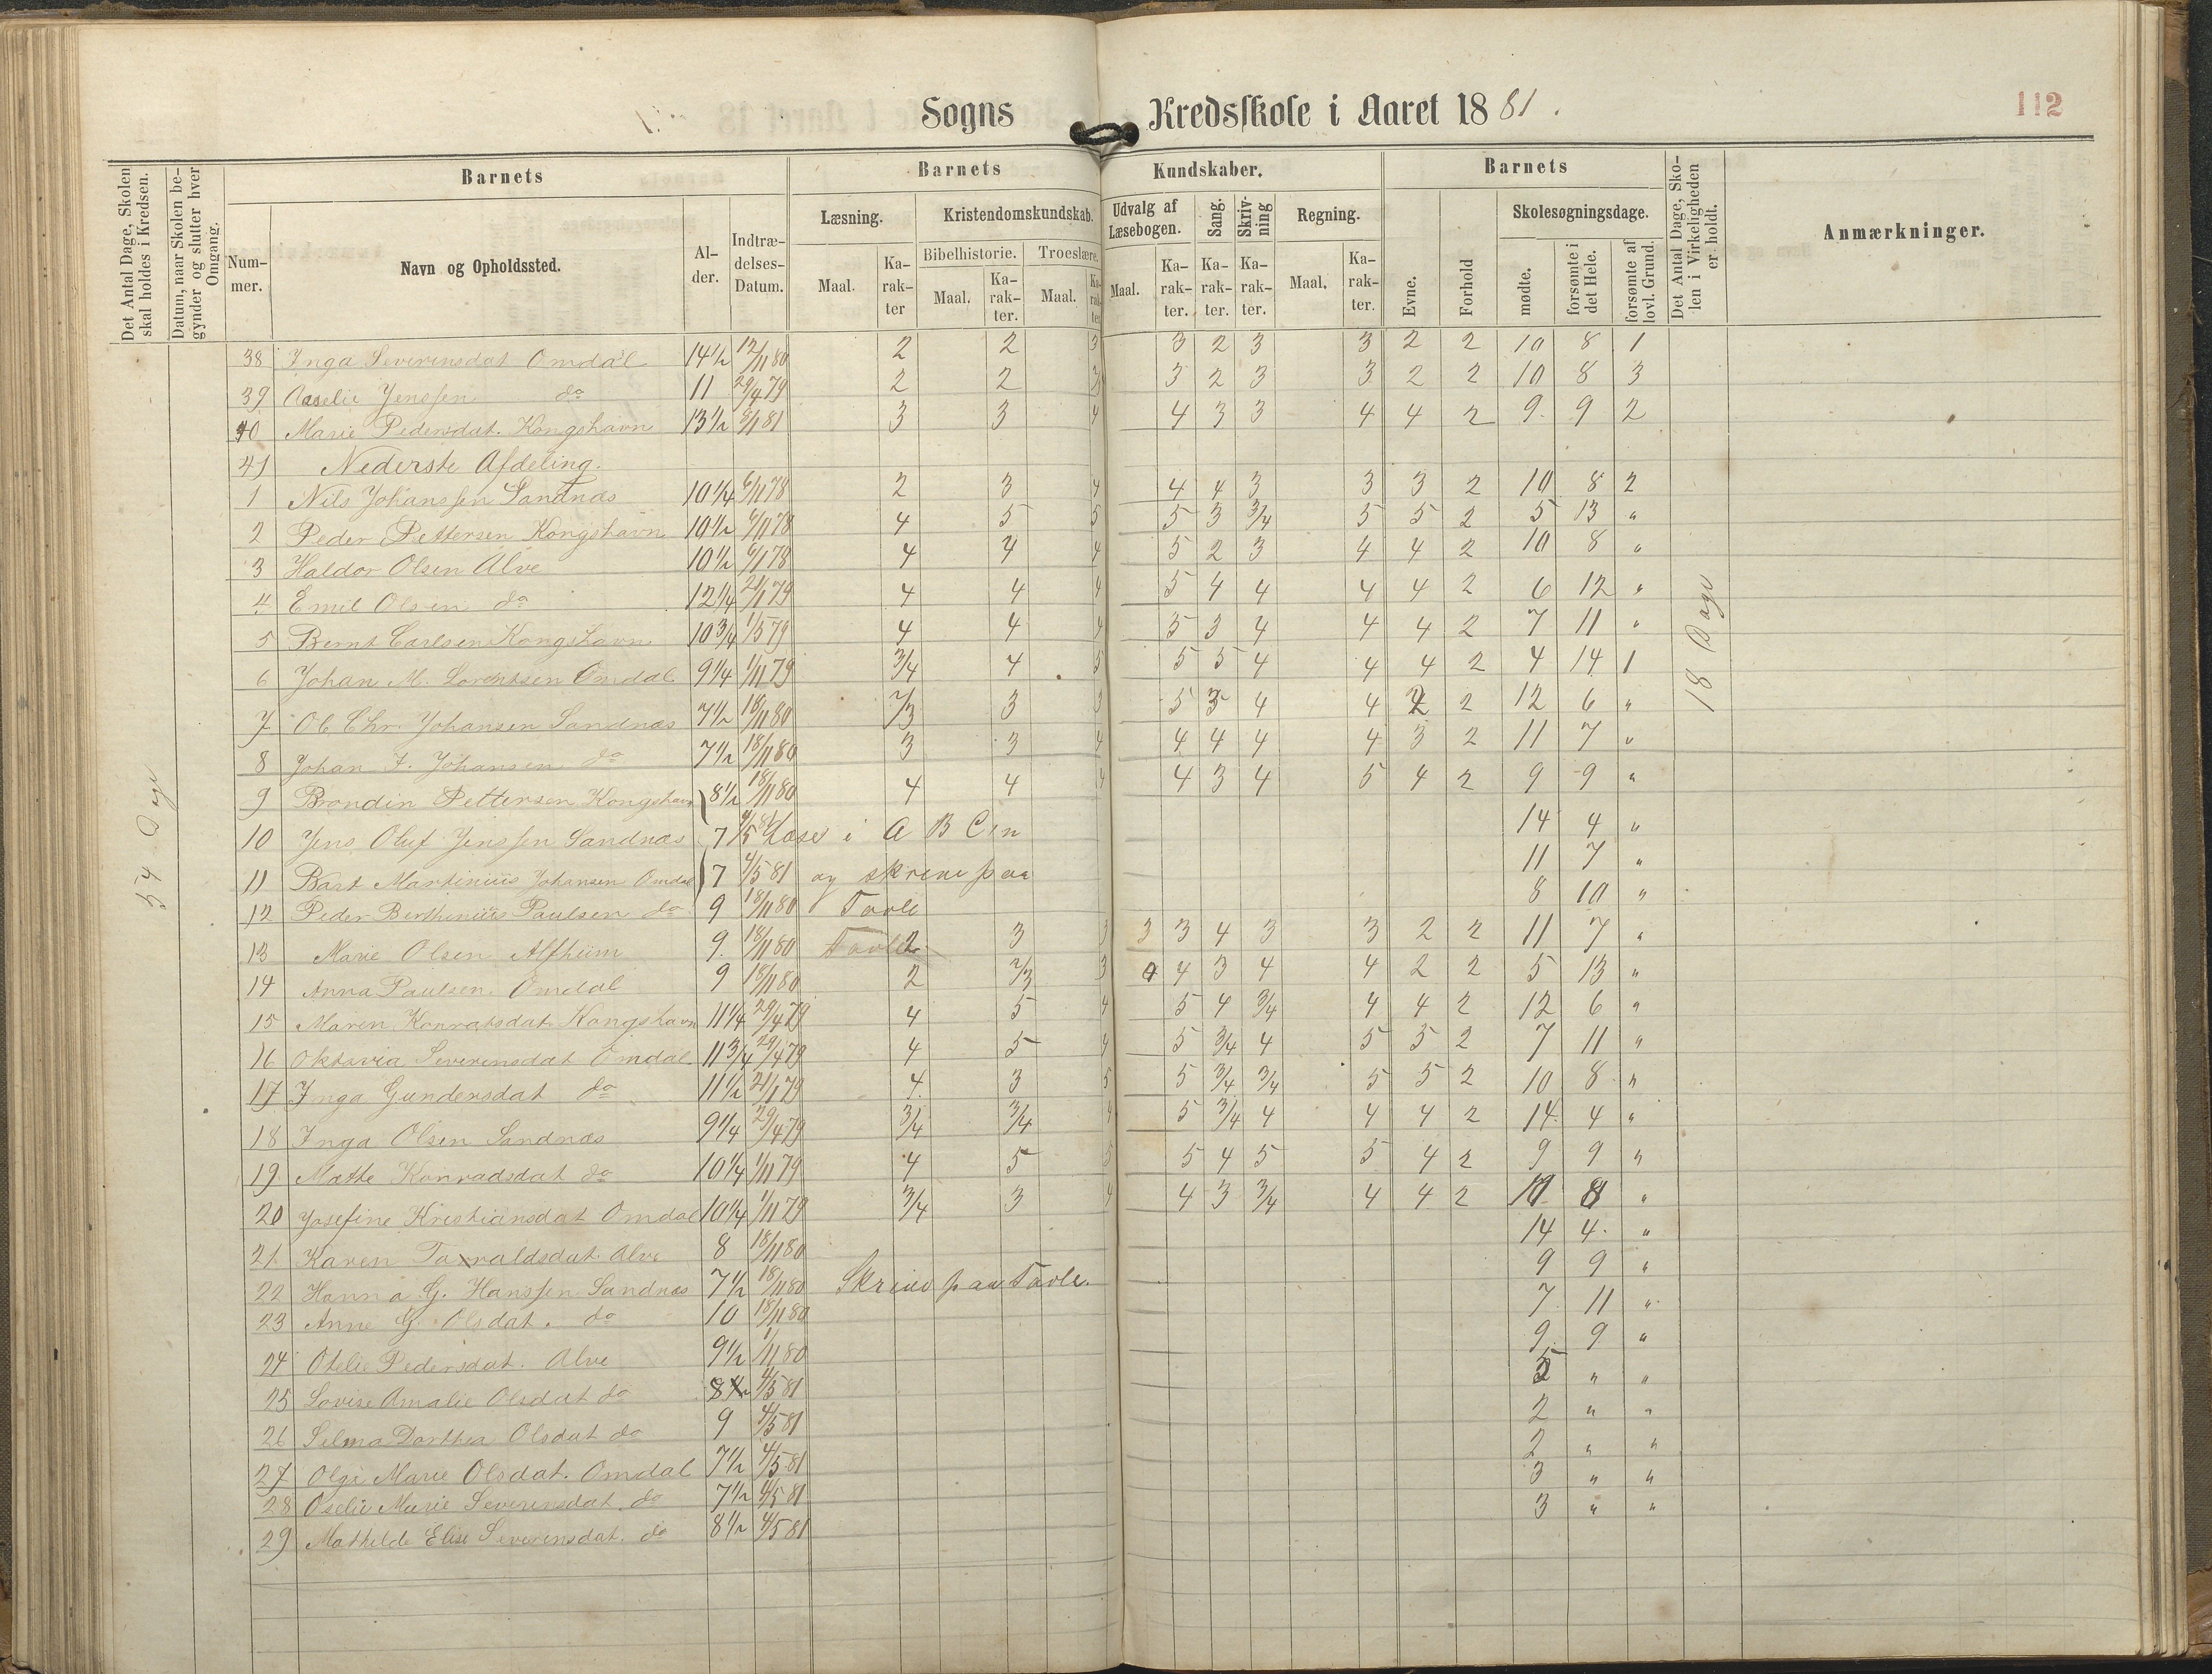 Sogns Kredsskole i Aaret 1881.
112
Det Antal Dage, Skolen skal holdes i Kredsen.
Datum, naar Skolen begynder og slutter hver Omgang.
Barnets
Nummer.
Navn og Opholdssted.
Alder.
Indtrædelses-Datum.
Barnets Kundskaber.
Læsning.
Maal.
Karakter
Kristendomskundskab.
Bibelhistorie.
Maal.
Karakter.
Troeslære.
Maal.
Karakter
Udvalg af Læsebogen.
Maal.
Karakter.
Sang.
Karakter.
Skrivning
Karakter.
Regning.
Maal.
Karakter.
Barnets
Evne.
Forhold
Skolesøgningsdage.
mødte.
forsømte i det Hele.
forsømte af lovl. Grund.
Det Antal Dage, Skolen i Virkeligheden er holdt.
Anmærkninger.
54 Dage
18 Dage
38 Inga Severinsdat Omdal 14½ 12/11 80 2 2 3 3 2 3 3 2 2 10 8 1
39 Aaselie Jenssen do 11 29/4 79 2 2 3 3 2 3 3 2 2 10 8 3
40 Marie Pedersdat. Kongshavn 13½ 8/1 81 3 3 4 4 3 3 4 4 2 9 9 2
41 Nederste Afdeling.
1 Nils Johanssen Sandnæs 10¼ 6/11 78 2 3 4 4 4 3 3 3 2 10 8 2
2 Peder Pettersen Kongshavn 10½ 6/11 78 4 5 5 5 3 3/4 5 5 2 5 13 "
3 Haldor Olsen Alve 10½ 6/11 78 4 4 4 5 2 3 4 4 2 10 8 "
4 Emil Olsen do 12¼ 21/1 79 4 4 4 5 4 4 4 4 2 6 12 "
5 Bernt Carlsen Kongshavn 10¾ 1/5 79 4 4 4 5 3 4 4 4 2 7 11 "
6 Johan M. Lorentsen Omdal 9¼ 1/11 79 3/4 4 5 5 5 4 4 4 2 4 14 1
7 Ol. Chr. Johansen Sandnæs 7½ 18/11 80 2/3 3 3 5 3 4 4 2 2 12 6 "
8 Johan F. Johansen do 7½ 18/11 80 3 3 4 4 4 4 4 3 2 11 7 "
9 Brondin Pettersen Kongshavn 8½ 18/11 80 4 4 4 4 3 4 5 4 2 9 9 "
10 Jens Oluf Jenssen Sandnæs 7 4/5 81 Læser i A B C en 14 4 "
11 Bart Martinius Johansen Omdal 7 4/5 81 og skrive paa 11 7 "
12 Peder Berthinius Paulsen do 9 18/11 80 Tavle 8 10 "
13 Marie Olsen Alfheim 9 18/11 80 Tavle 2 3 3 3 3 4 3 3 2 2 11 7 "
14 Anna Paulsen Omdal 9 18/11 80 2 2/3 3 4 4 3 4 4 2 2 5 13 "
15 Maren Konradsdat Kongshavn 11¼ 29/4 79 4 5 4 5 4 3/4 4 4 2 12 6 "
16 Oktavia Severinsdat Omdal 11¾ 29/4 79 4 5 4 5 3/4 4 5 5 2 7 11 "
17 Inga Gundersdat do 11½ 21/1 79 4 3 5 5 3/4 3/4 5 5 2 10 8 "
18 Inga Olsen Sandnæs 9¼ 29/4 79 3/4 3/4 4 5 3/4 4 4 4 2 14 4 "
19 Mathe Konradsdat do 10¼ 1/11 79 4 5 5 5 4 5 5 4 2 9 9 "
20 Josefine Kristiansdat Omdal 10¼ 1/11 79 3/4 3 4 4 3 3/4 4 4 2 10 8 "
21 Karen Taraldsdat Alve 8 18/11 80 14 4 "
22 Hanna G. Hanssen Sandnæs 7½ 18/11 80 Skrive paa Tavle. 9 9 "
23 Anne G Olsdat. do 10 18/11 80 7 11 "
24 Otelie Pedersdat. Alve 9½ 1/11 80 9 9 "
25 Lovise Amalie Olsdat do 8½ 4/5 81 5 " "
26 Selma Dorthea Olsdat do 9 4/5 81 2 " "
27 Olga Marie Olsdat. Omdal 7½ 4/5 81 2 " "
28 Oselie Marie Severinsdat. do 7½ 4/5 81 3 " "
29 Mathilde Elise Severinsdat. do 8½ 4/5 81 3 " "